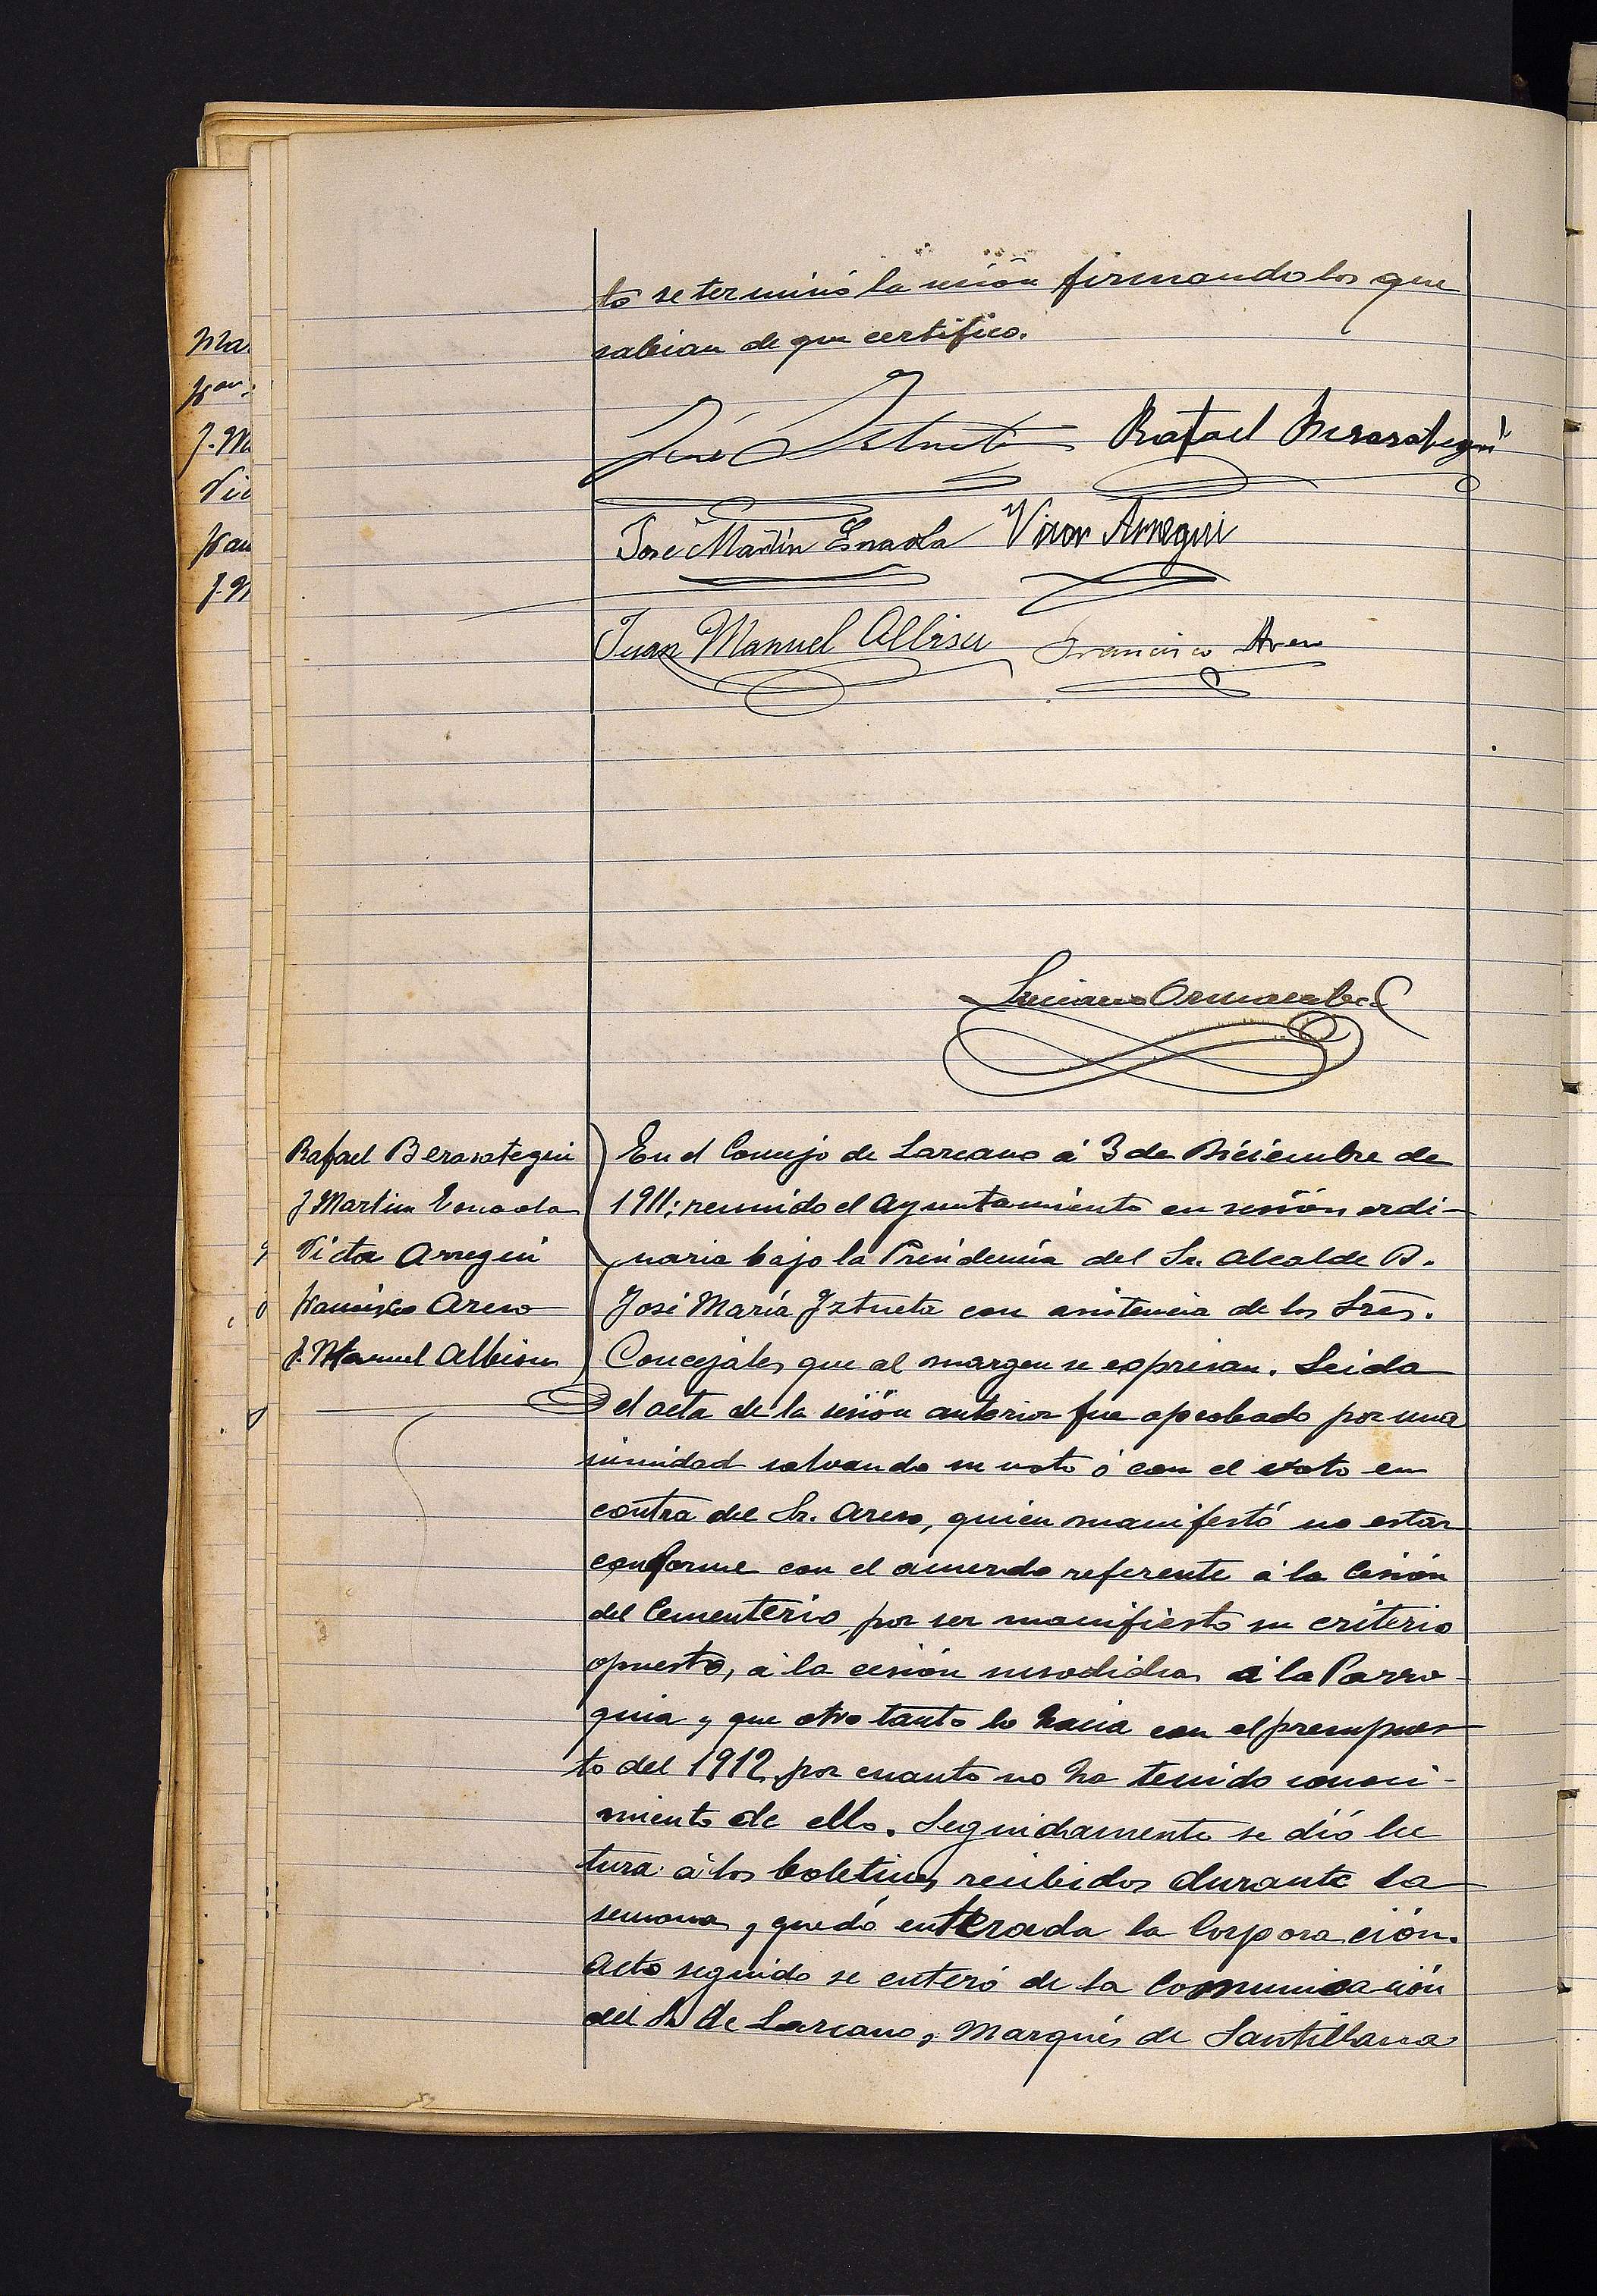 to se terminó la sesión firmando los que
sabian de que certifico.
José Iztueta Rafael Berasategui
José Martin Esnaola Victor Arregui
Juan Manuel Albisu Francisco Areso
Luciano
Rafael Berasategui
J Martin Esnaola
Victor Arregui
Francisco Areso
J. Manuel Albisu
En el Concejo de Lazcano á 3 de Diciembre de
1911; reunido el Ayuntamiento en sesión ordi-
naria bajo la Presidencia del Sr. Alcalde D.
José María Iztueta con asistencia de los Sres.
Concejales que al margen se expresan. Leida
el acta de la sesión anterior fue aprobado por una
nimidad salvando su voto ó con el voto en
contra del Sr. Areso, quien manifestó no estar
conforme con el acuerdo referente á la Cesión
del Cementerio, por ser manifiesto su criterio
opuesto, á la cesión susodicha á la Parro-
quia y que otro tanto lo hacia con el presupues
to del 1912, por cuanto no ha tenido conoci-
miento de ello. Seguidamente se dió lec
tura á los boletines recibidos durante la
semana y quedó enterada la Corporación.
Acto seguido se enteró de la Comunicación
del S. de Lazcano y Marqués de Santillana
Ma
Fran
J. M
Vic
Fran
J. M